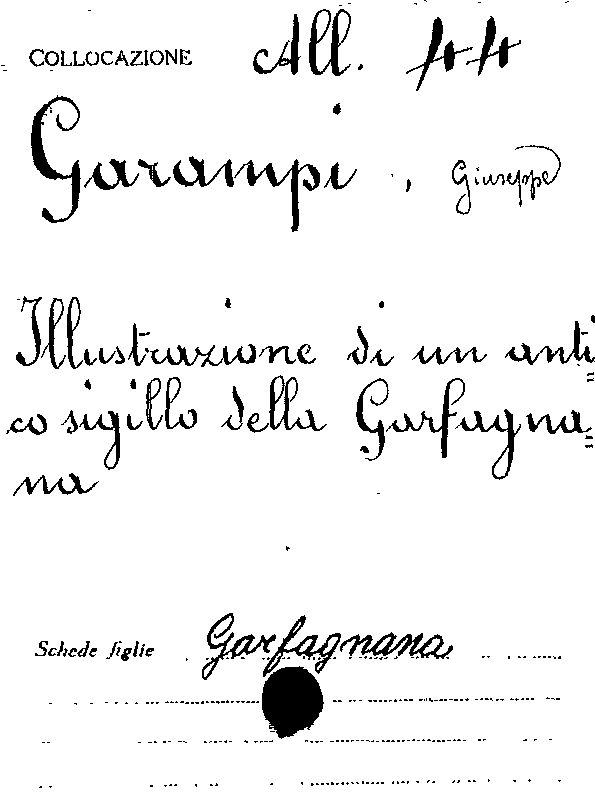 COLLOCAZIONE All. 44
Garampi, Giuseppe
Illustrazione di un anti=
co sigillo della Garfagna=
na
Schede figlie Garfagnana